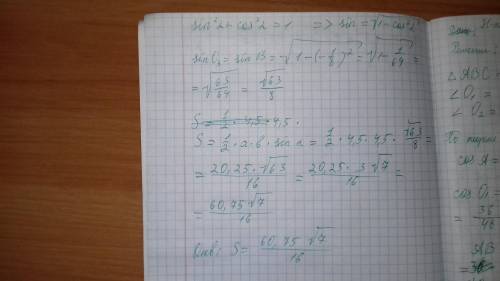 sin²α + cos²α = 1 => sin = √1-cos²α
sin O₁ = sin B = √1-(-1/8)² = √1-1/64 =
= √63/64 = √63/8
S = 1/2 · 4,5 · 4,5 ·
S = 1/2 · a · b · sin α = 1/2 · 4,5 · 4,5 · √63/8 =
= 20,25 · √63/16 = 20,25 · 3√7/16 =
= 60,75√7/16
Отв: S = 60,75 √7/16
Дано:
Решение
△ ABC
∠ O₁ =
∠ O₂ =
По
cos A =
cos O₁ =
= 36/48
AB